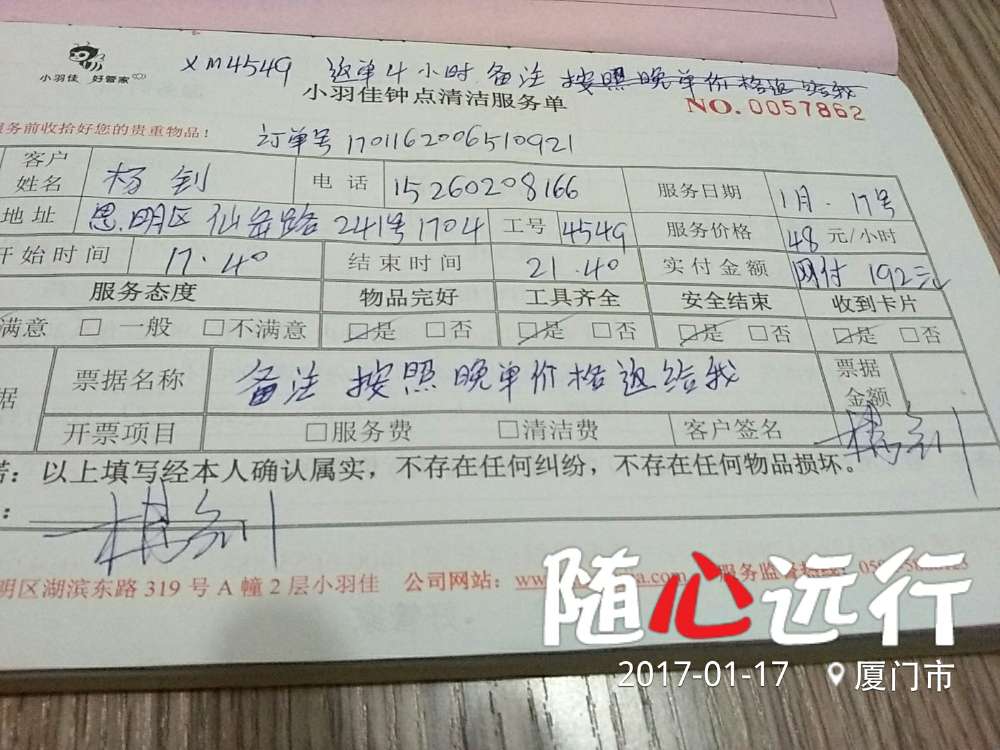 XM4549 返单4小时 备注 按照晚单价格返给我
小羽佳 好管家
小羽佳钟点清洁服务单
NO. 0057862
务前收拾好您的贵重物品！
订单号 1701162006510921
客户姓名 杨钊 电话 15260208166 服务日期 1月·17号
地址 思明区 仙岳路 241号1704 工号 4549 服务价格 48 元/小时
开始时间 17·40 结束时间 21·40 实付金额 网付 192元
服务态度 物品完好 工具齐全 安全结束 收到卡片
满意 □ 一般 □不满意 ☑是 □否 ☑是 □否 ☑是 □否 ☑是 □否
据 票据名称 备注 按照晚单价格返给我 票据金额
开票项目 □服务费 □清洁费 客户签名 杨钊
诺：以上填写经本人确认属实，不存在任何纠纷，不存在任何物品损坏。
： 杨钊
明区湖滨东路 319 号 A 幢 2 层小羽佳 公司网站：www. 服务监督热线
随心远行
2017-01-17 厦门市